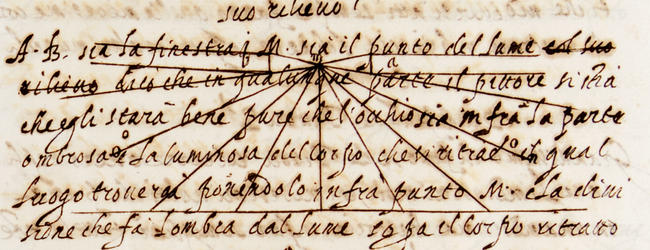 suo rilievo?
A. B. sia la finestra M. sia il punto del lume col suo
rilieuo dico che in qualunque parte il pittore si stia
che egli starà bene pure che l'occhio sia infra la parte
ombrosa e la luminosa del corpo che si ritrae in qual
luogo trouerai ponendolo infra punto M. e la diui
sione che fa l'ombra dal lume sopra il corpo ritratto